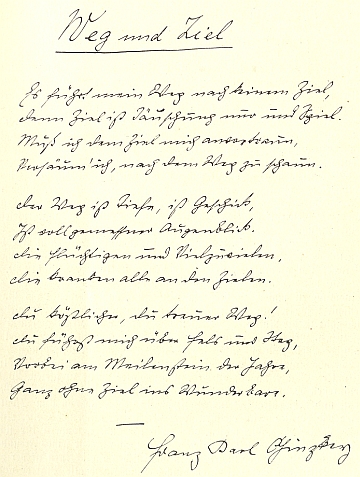 Weg und Ziel
Es führt mein Weg nach keinem Ziel,
denn Ziel ist Täuschung nur und Spiel.
Muß ich dem Ziel mich anvertraun,
Versäum' ich, nach dem Weg zu schaun.
Der Weg ist Tiefe, ist Geschick,
Ist voll gemessner Augenblick.
Die Flüchtigen und Vielzuvielen,
die kranken alle an den Zielen.
Du köstlicher, du treuer Weg!
Du führst mich über Fels und Steg,
Vorbei am Meilenstein der Jahre,
Ganz ohne Ziel ins Wunderbare.
Franz Karl Ginzkey